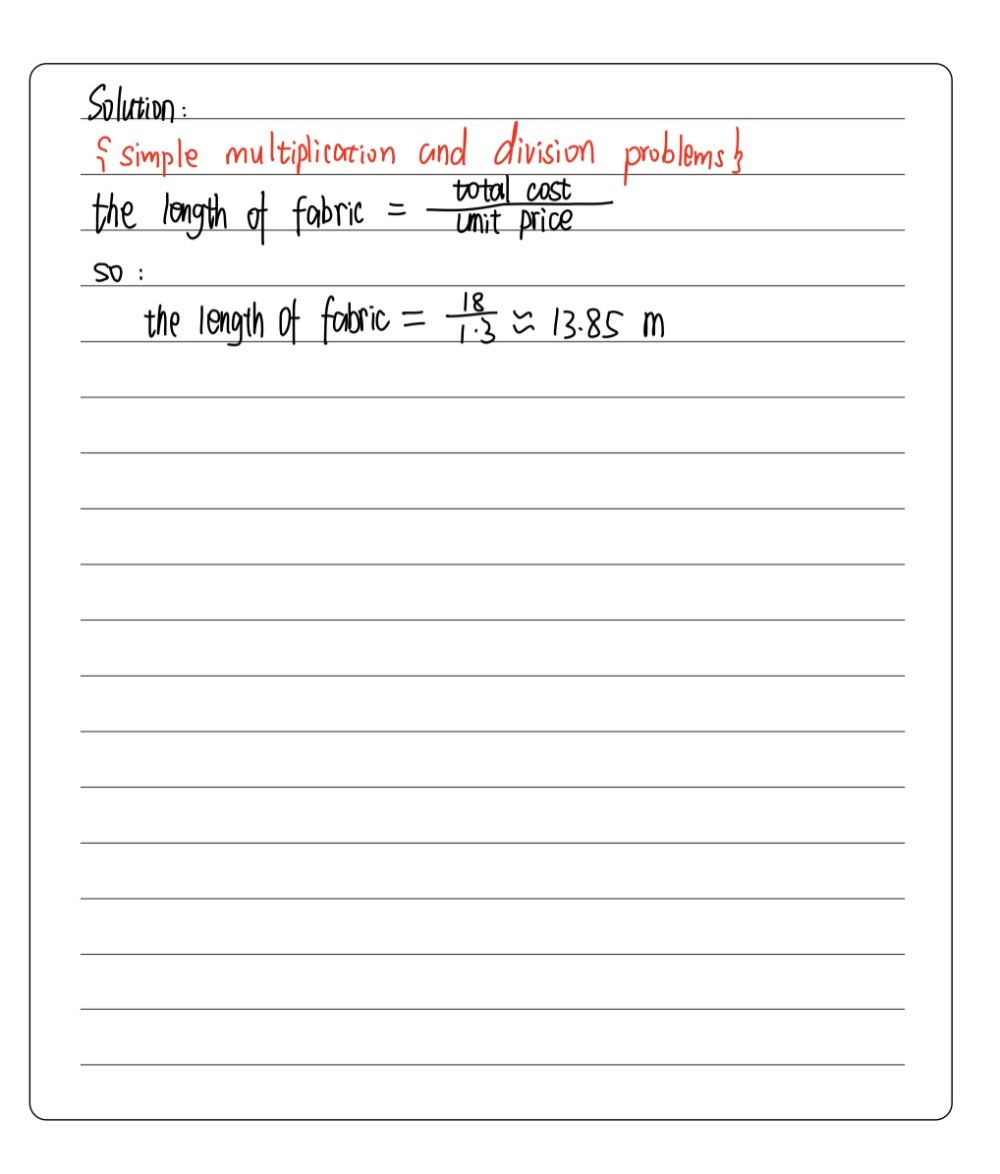 Solution:
{simple multiplication and division problems}
the length of fabric = total cost / unit price
so :
the length of fabric = 18 / 1.3 ≈ 13.85 m